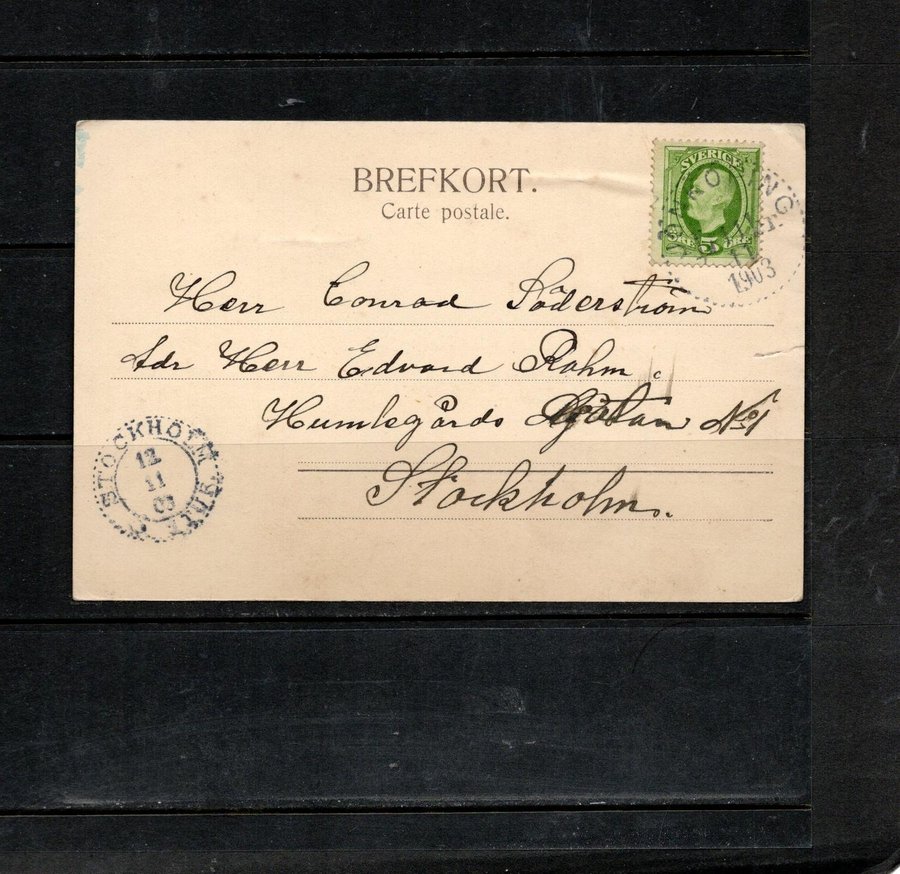 BREFKORT.
Carte postale.
SVERIGE
5 ÖRE
1903
Herr Conrad Söderström
Adr Herr Edvard Rahm
Humlegårds gatan No 1
Stockholm.
STOCKHOLM
12
11
03